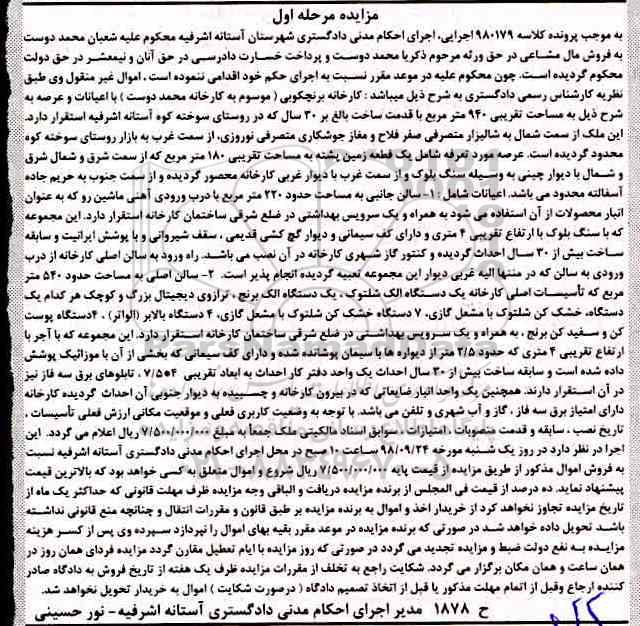 مزایده مرحله اول
به موجب پرونده کلاسه ۹۸۰۱۷۹ اجرایی، اجرای احکام مدنی دادگستری شهرستان آستانه اشرفیه محکوم علیه شعبان محمد دوست
به فروش مال مشاعی در حق ورثه مرحوم ذکریا محمد دوست و پرداخت خسارت دادرسی در حق آنان و نیمعشر در حق دولت
محکوم گردیده است. چون محکوم علیه در موعد مقرر نسبت به اجرای حکم خود اقدامی ننموده است ، اموال غیر منقول وی طبق
نظریه کارشناس رسمی دادگستری به شرح ذیل میباشد : کارخانه برنچکوبی ( موسوم به کارخانه محمد دوست ) با اعیانات و عرصه به
شرح ذیل به مساحت تقریبی ۹۴۰ متر مربع با قدمت ساخت بالغ بر ۳۰ سال که در روستای سوخته کوه آستانه اشرفیه استقرار دارد.
این ملک از سمت شمال به شالیزار متصرفی صفر فلاح و مغاز جوشکاری متصرفی نوروزی، از سمت غرب به بازار روستای سوخته کوه
محدود گردیده است. عرصه مورد تعرفه شامل یک قطعه زمین پشته به مساحت تقریبی ۱۸۰ متر مربع که از سمت شرق و شمال شرق
و شمال با دیوار چینی به وسیله سنگ بلوک و از سمت غرب با دیوار غربی کارخانه محصور گردیده و از سمت جنوب به حریم جاده
آسفالته محدود می باشد. اعیانات شامل : ۱- سالن جانبی به مساحت حدود ۲۲۰ متر مربع با درب ورودی آهنی ماشین رو که به عنوان
انبار محصولات از آن استفاده می شود به همراه و یک سرویس بهداشتی در ضلع شرقی ساختمان کارخانه استقرار دارد. این مجموعه
که با سنگ بلوک با ارتفاع تقریبی ۴ متری و دارای کف سیمانی و دیوار گچ کشی قدیمی ، سقف شیروانی و با پوشش ایرانیت و سابقه
ساخت بیش از ۳۰ سال احداث گردیده و کنتور گاز شهری کارخانه در آن نصب می باشد. راه ورود به سالن اصلی کارخانه از درب
ورودی به سالن که در منتها الیه غربی دیوار این مجموعه تعبیه گردیده انجام پذیر است. ۲- سالن اصلی به مساحت حدود ۵۴۰ متر
مربع که تأسیسات اصلی کارخانه یک دستگاه الک شلتوک ، یک دستگاه الک برنج ، ترازوی دیجیتال بزرگ و کوچک هر کدام یک
دستگاه، خشک کن شلتوک با مشعل گازی، ۷ دستگاه خشک کن شلتوک با مشعل گازی، ۴ دستگاه بالابر (الواتر) ، ۴دستگاه پوست
کن و سفید کن برنج ، به همراه و یک سرویس بهداشتی در ضلع شرقی ساختمان کارخانه استقرار دارد. این مجموعه که با آجر با
ارتفاع تقریبی ۴ متری که حدود ۲/۵ متر از دیواره ها با سیمان پوشانده شده و دارای کف سیمانی که بخشی از آن با موزائیک پوشش
داده شده است و سابقه ساخت بیش از ۳۰ سال احداث یک واحد دفتر کار احداث به ابعاد تقریبی ۴*۷/۵ ، تابلوهای برق سه فاز نیز
در آن استقرار دارند. همچنین یک واحد انبار ضایعاتی که در بیرون کارخانه و چسبیده به دیوار جنوبی آن احداث گردیده کارخانه
دارای امتیاز برق سه فاز ، گاز و آب شهری و تلفن می باشد. با توجه به وضعیت کاربری فعلی و موقعیت مکانی ارزش فعلی تأسیسات ،
تاریخ نصب ، سابقه و قدمت منصوبات ، امتیازات ، سوابق اسناد مالکیتی ملک جمعاً به مبلغ ۷/۵۰۰/۰۰۰/۰۰۰ ریال اعلام می گردد. این
اجرا در نظر دارد در روز یک شنبه مورخه ۹۸/۰۹/۲۴ ساعت ۱۰ صبح در محل اجرای احکام مدنی دادگستری آستانه اشرفیه نسبت
به فروش اموال مذکور از طریق مزایده از قیمت پایه ۷/۵۰۰/۰۰۰/۰۰۰ ریال شروع و اموال متعلق به کسی خواهد بود که بالاترین قیمت
پیشنهاد نماید. ده درصد از قیمت فی المجلس از برنده مزایده دریافت و الباقی وجه مزایده ظرف مهلت قانونی که حداکثر یک ماه از
تاریخ مزایده تجاوز نخواهد کرد از خریدار اخذ و اموال به برنده مزایده بر طبق قانون و مقررات انتقال و چنانچه منع قانونی نداشته
باشد تحویل داده خواهد شد در صورتی که برنده مزایده در موعد مقرر بقیه بهای اموال را نپردازد سپرده وی پس از کسر هزینه
مزایده به نفع دولت ضبط و مزایده تجدید می گردد در صورتی که روز مزایده با ایام تعطیل مقارن گردد مزایده فردای همان روز در
همان ساعت و همان مکان برگزار می گردد. شکایت راجع به تخلف از مقررات مزایده ظرف یک هفته از تاریخ فروش به دادگاه صادر
کننده ارجاع وقبل از اتمام مهلت مذکور یا قبل از اتخاذ تصمیم دادگاه ( درصورت شکایت ) اموال به خریدار تحویل نخواهد شد.
ح ۱۸۷۸ مدیر اجرای احکام مدنی دادگستری آستانه اشرفیه- نور حسینی